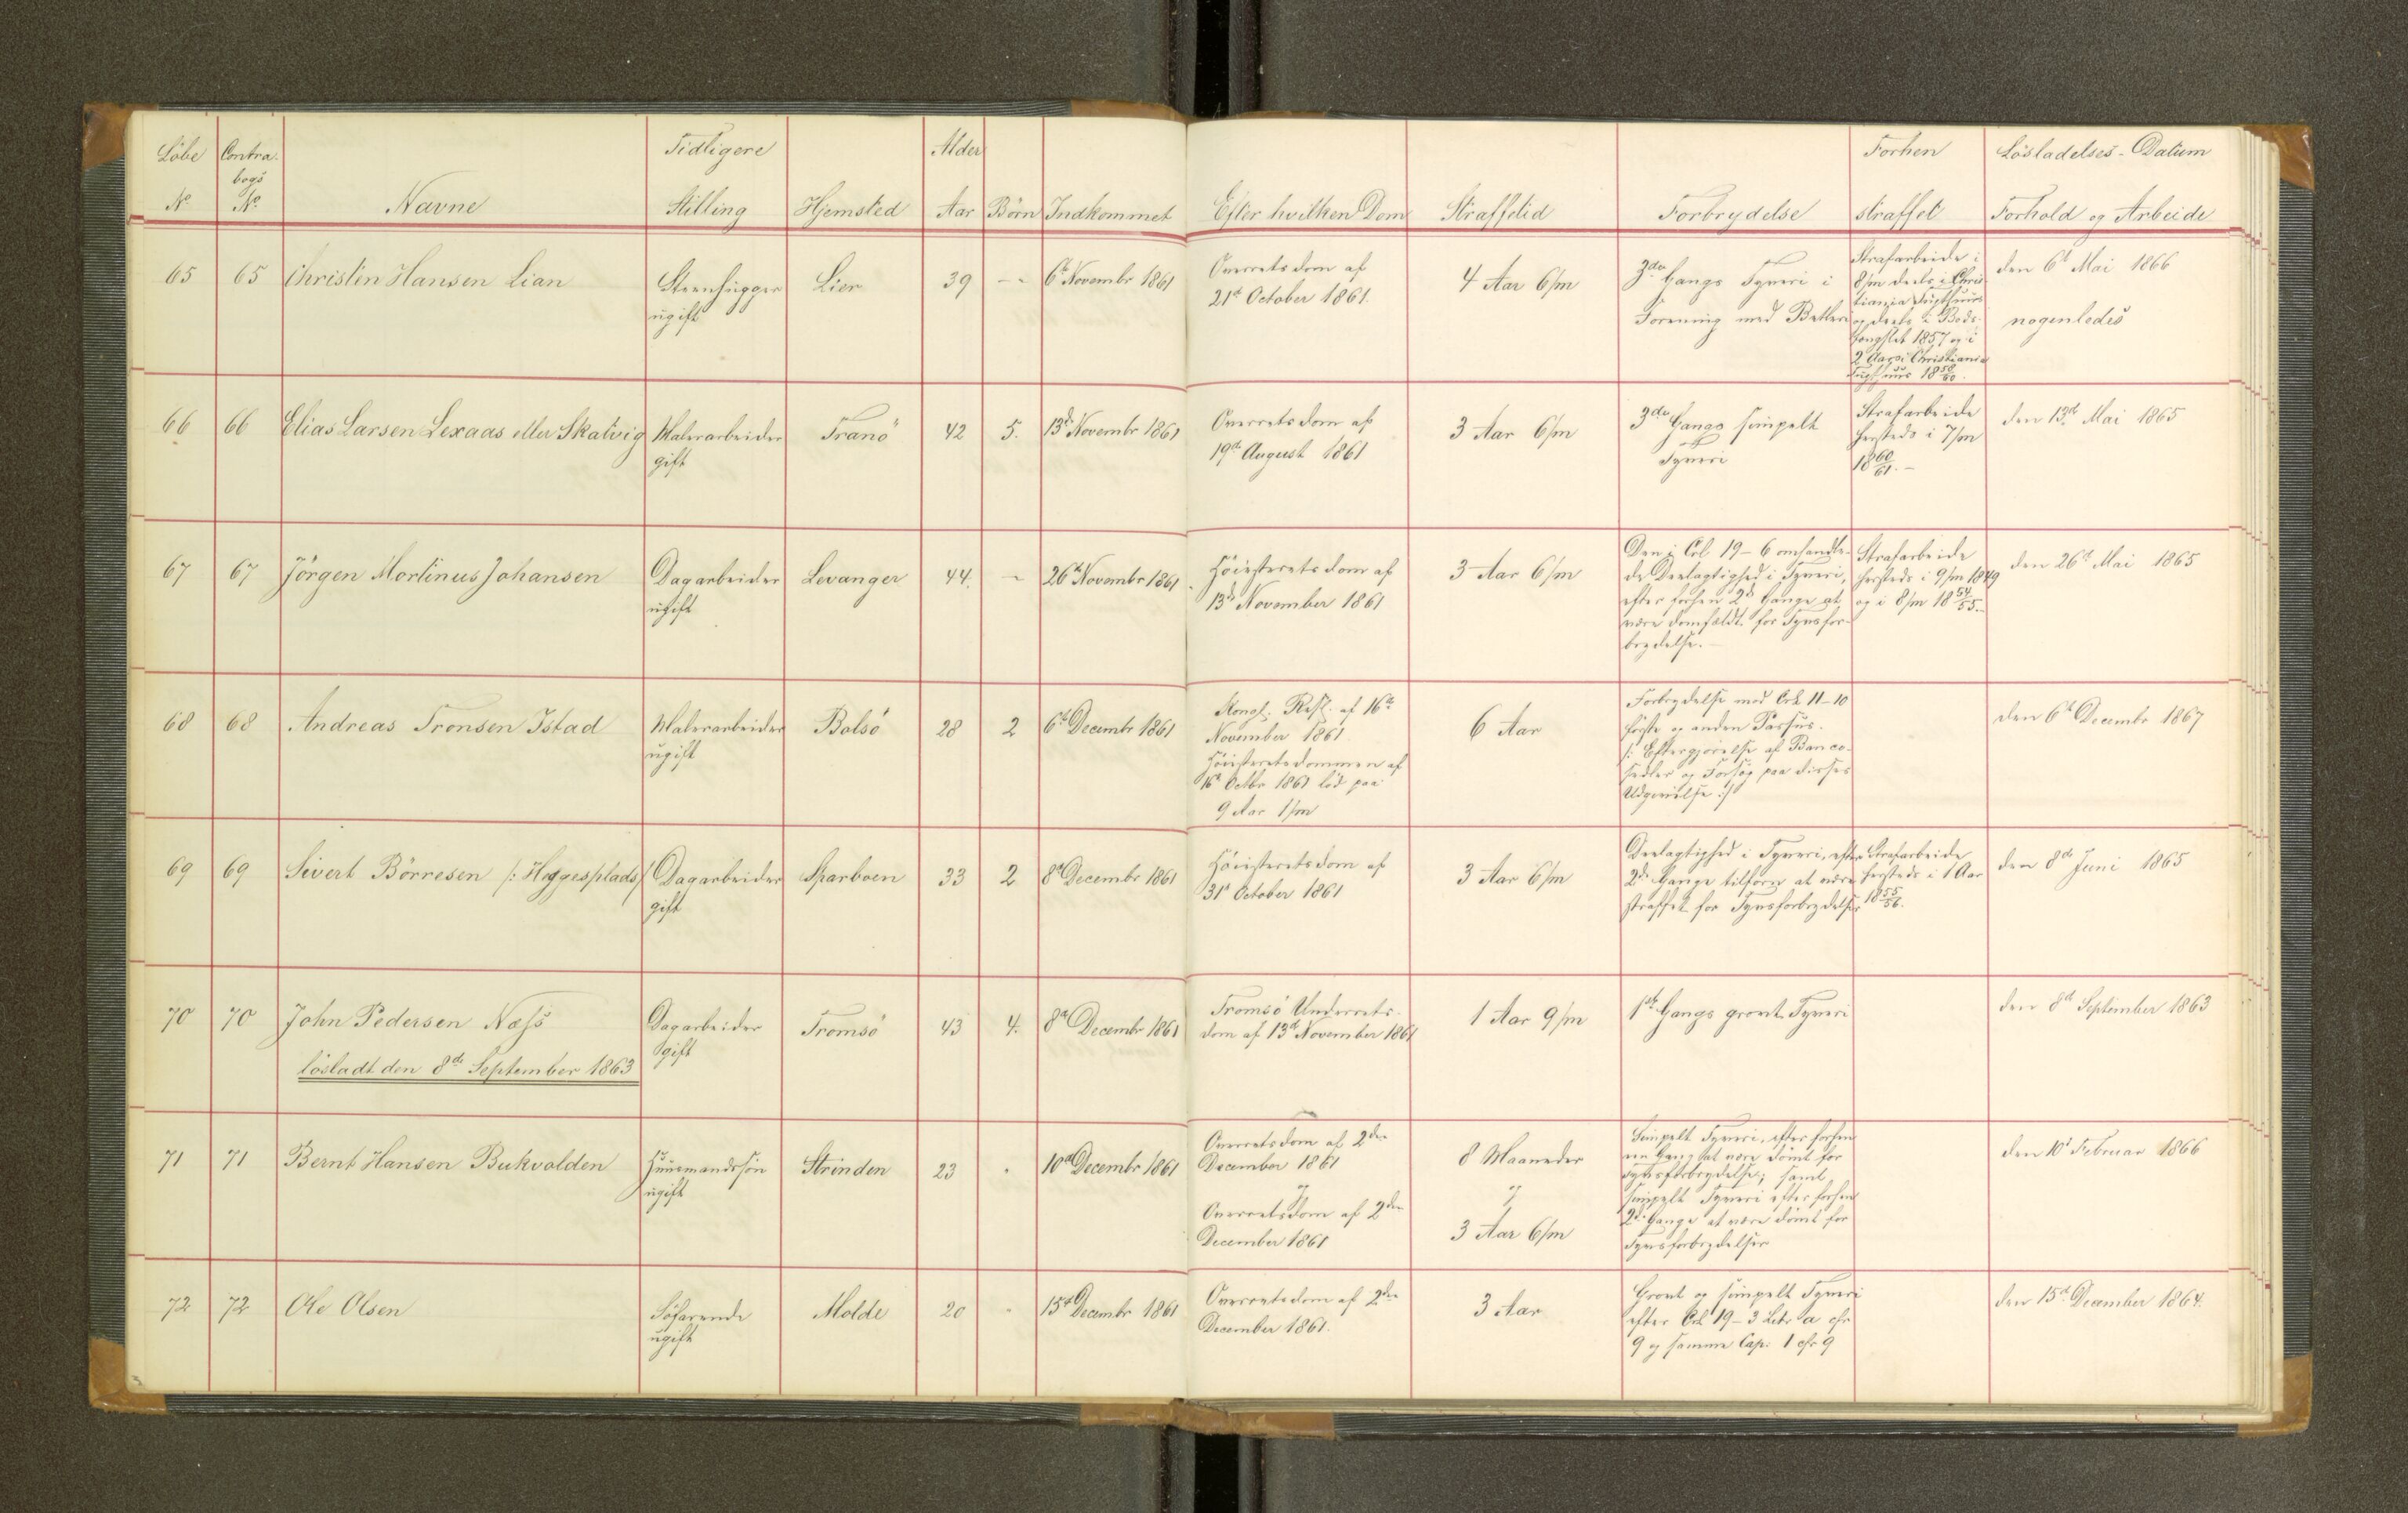 Löbe Contra- Tidligere Alder Forhen Lösladelses-Datum
bogs
No No Navne Stilling Hjemsted Aar Börn Indkommet Efter hvilken Dom Straffetid Forbrydelse straffet Forhold og Arbeide
65 65 Christen Hansen Lian Steenhugger Lier 39 -- 6te Novembr 1861 Overretsdom af 4 Aar 6/m 3die Gangs Tyveri i Strafarbeide i den 6te Mai 1866
ugift 21de October 1861. Forening med Betleri 8/m deels i Chris-
tiania Tugthuus nogenledes
og deels i Bods-
fængslet 1857 og i
2 Aar i Christiania
Tugthuus 18 58/60.
66 66 Elias Larsen Lexaas eller Skatvig Malerarbeider Tranö 42 5. 13de Novembr 1861 Overretsdom af 3 Aar 6/m 3die Gangs simpelt Strafarbeide den 13de Mai 1865
gift 19de August 1861 Tyveri hersteds i 7/m
18 60/61.-
67 67 Jörgen Martinus Johansen Dagarbeider Levanger 44. - 26de Novembr 1861 Höiesteretsdom af 3 Aar 6/m Den i Crl 19-6 omhandle- Strafarbeide den 26de Mai 1865
ugift 13de November 1861 de Deelagtighed i Tyveri, hersteds i 9/m 1849
efter forhen 2de Gange at og i 8/m 18 54/55.
være domfældt for Tyvsfor-
brydelse.-
68 68 Andreas Tronsen Istad Malerarbeider Bolsö 28 2 6te Decembr 1861 Kongl. Resl. af 16de 6 Aar Forbrydelse mod Crl 11-10 den 6te Decembr 1867
ugift November 1861. förste og anden Passus.
Höiesteretsdommen af /: Eftergjörelse af Banco-
16de Octbr 1861 löd paa sedler og Forsög paa disses
9 Aar 1/m Udgivelse :/
69 69 Sivert Börresen /: Heggesplads/ Dagarbeider Sparboen 33 2 8de Decembr 1861 Höiesteretsdom af 3 Aar 6/m Deelagtighed i Tyveri, efter Strafarbeide den 8de Juni 1865
gift 31te October 1861 2de Gange tilforn at være hersteds i 1 Aar
straffet for Tyvsforbrydelser 18 55/56.
70 70 John Pedersen Næss Dagarbeider Tromsö 43 4. 8de Decembr 1861 Tromsö Underrets- 1 Aar 9/m 1ste Gangs grovt Tyveri den 8de September 1863
gift dom af 13de November 1861
lösladt den 8de September 1863
71 71 Bernt Hansen Bukvolden Huusmandssön Strinden 23 . 10de Decembr 1861 Overretsdom af 2den 8 Maaneder Simpelt Tyveri, efter forhen den 10de Februar 1866
ugift December 1861 een Gang at være dömt for
og og Tyvsforbrydelse; samt
Overretsdom af 2den 3 Aar 6/m simpelt Tyveri efter forhen
December 1861 2de Gange at være dömt for
Tyvsforbrydelser
72 72 Ole Olsen Söfarende Molde 20 - 15de Decembr 1861 Overretsdom af 2den 3 Aar Grovt og simpelt Tyveri den 15de December 1864.
ugift December 1861. efter Crl 19-3 Litr a cfr
9 og samme Cap. 1 cfr 9